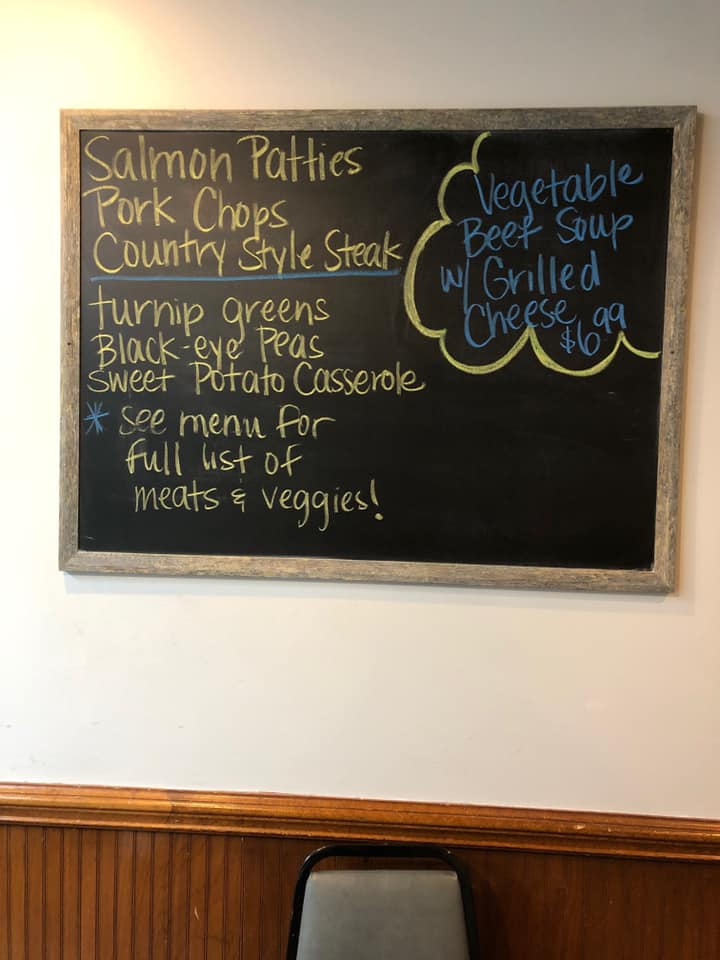 Salmon Patties
Pork Chops
Country Style Steak
turnip greens
Black-eye Peas
Sweet Potato Casserole
* See menu for
full list of
meats & veggies!
Vegetable
Beef Soup
w/ Grilled
Cheese
$6.99